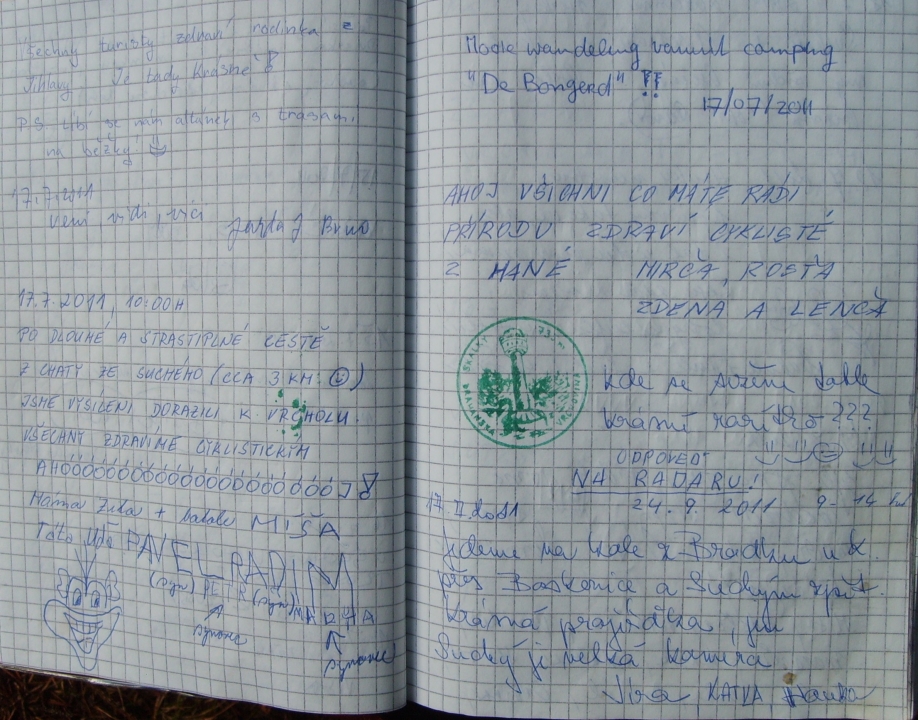 Všechny turisty zdraví rodinka z
Jihlavy. Je tady krásně!
P.S. Líbí se nám altánek s trasami
na běžky
17.7.2011
Veni, vidi, vici Jarda J Brno
17.7.2011, 10:00H
PO DLOUHÉ A STRASTIPLNÉ CESTĚ
Z CHATY ZE SUCHÉHO (CCA 3 KM:)
JSME VYSÍLENI DORAZILI K VRCHOLU.
VŠECHNY ZDRAVÍME CYKLISTICKÝM
AHÓÓÓÓÓÓÓÓÓÓÓÓÓÓÓÓÓÓÓÓJ!
Máma + MÍŠA
Táta PAVEL RADIM
(syn) PETR (syn) MARŤA
synové
Mooie wandeling vanuit camping
"De Bongerd" !!
17/07/2011
AHOJ VŠICHNI CO MÁTE RÁDI
PŘÍRODU ZDRAVÍ CYKLISTÉ
Z HANÉ MIRČA, ROSŤA
ZDENA A LENČA
SKALKY 735 m
Kde se
krásné ???
ODPOVĚĎ
NA RADARU!
24.9. 2011 9-14
Jedeme na kole z
přes Boskovice a Suchým zpět.
Krásná projížďka, jen
Suchý je velká
KATKA Hanka